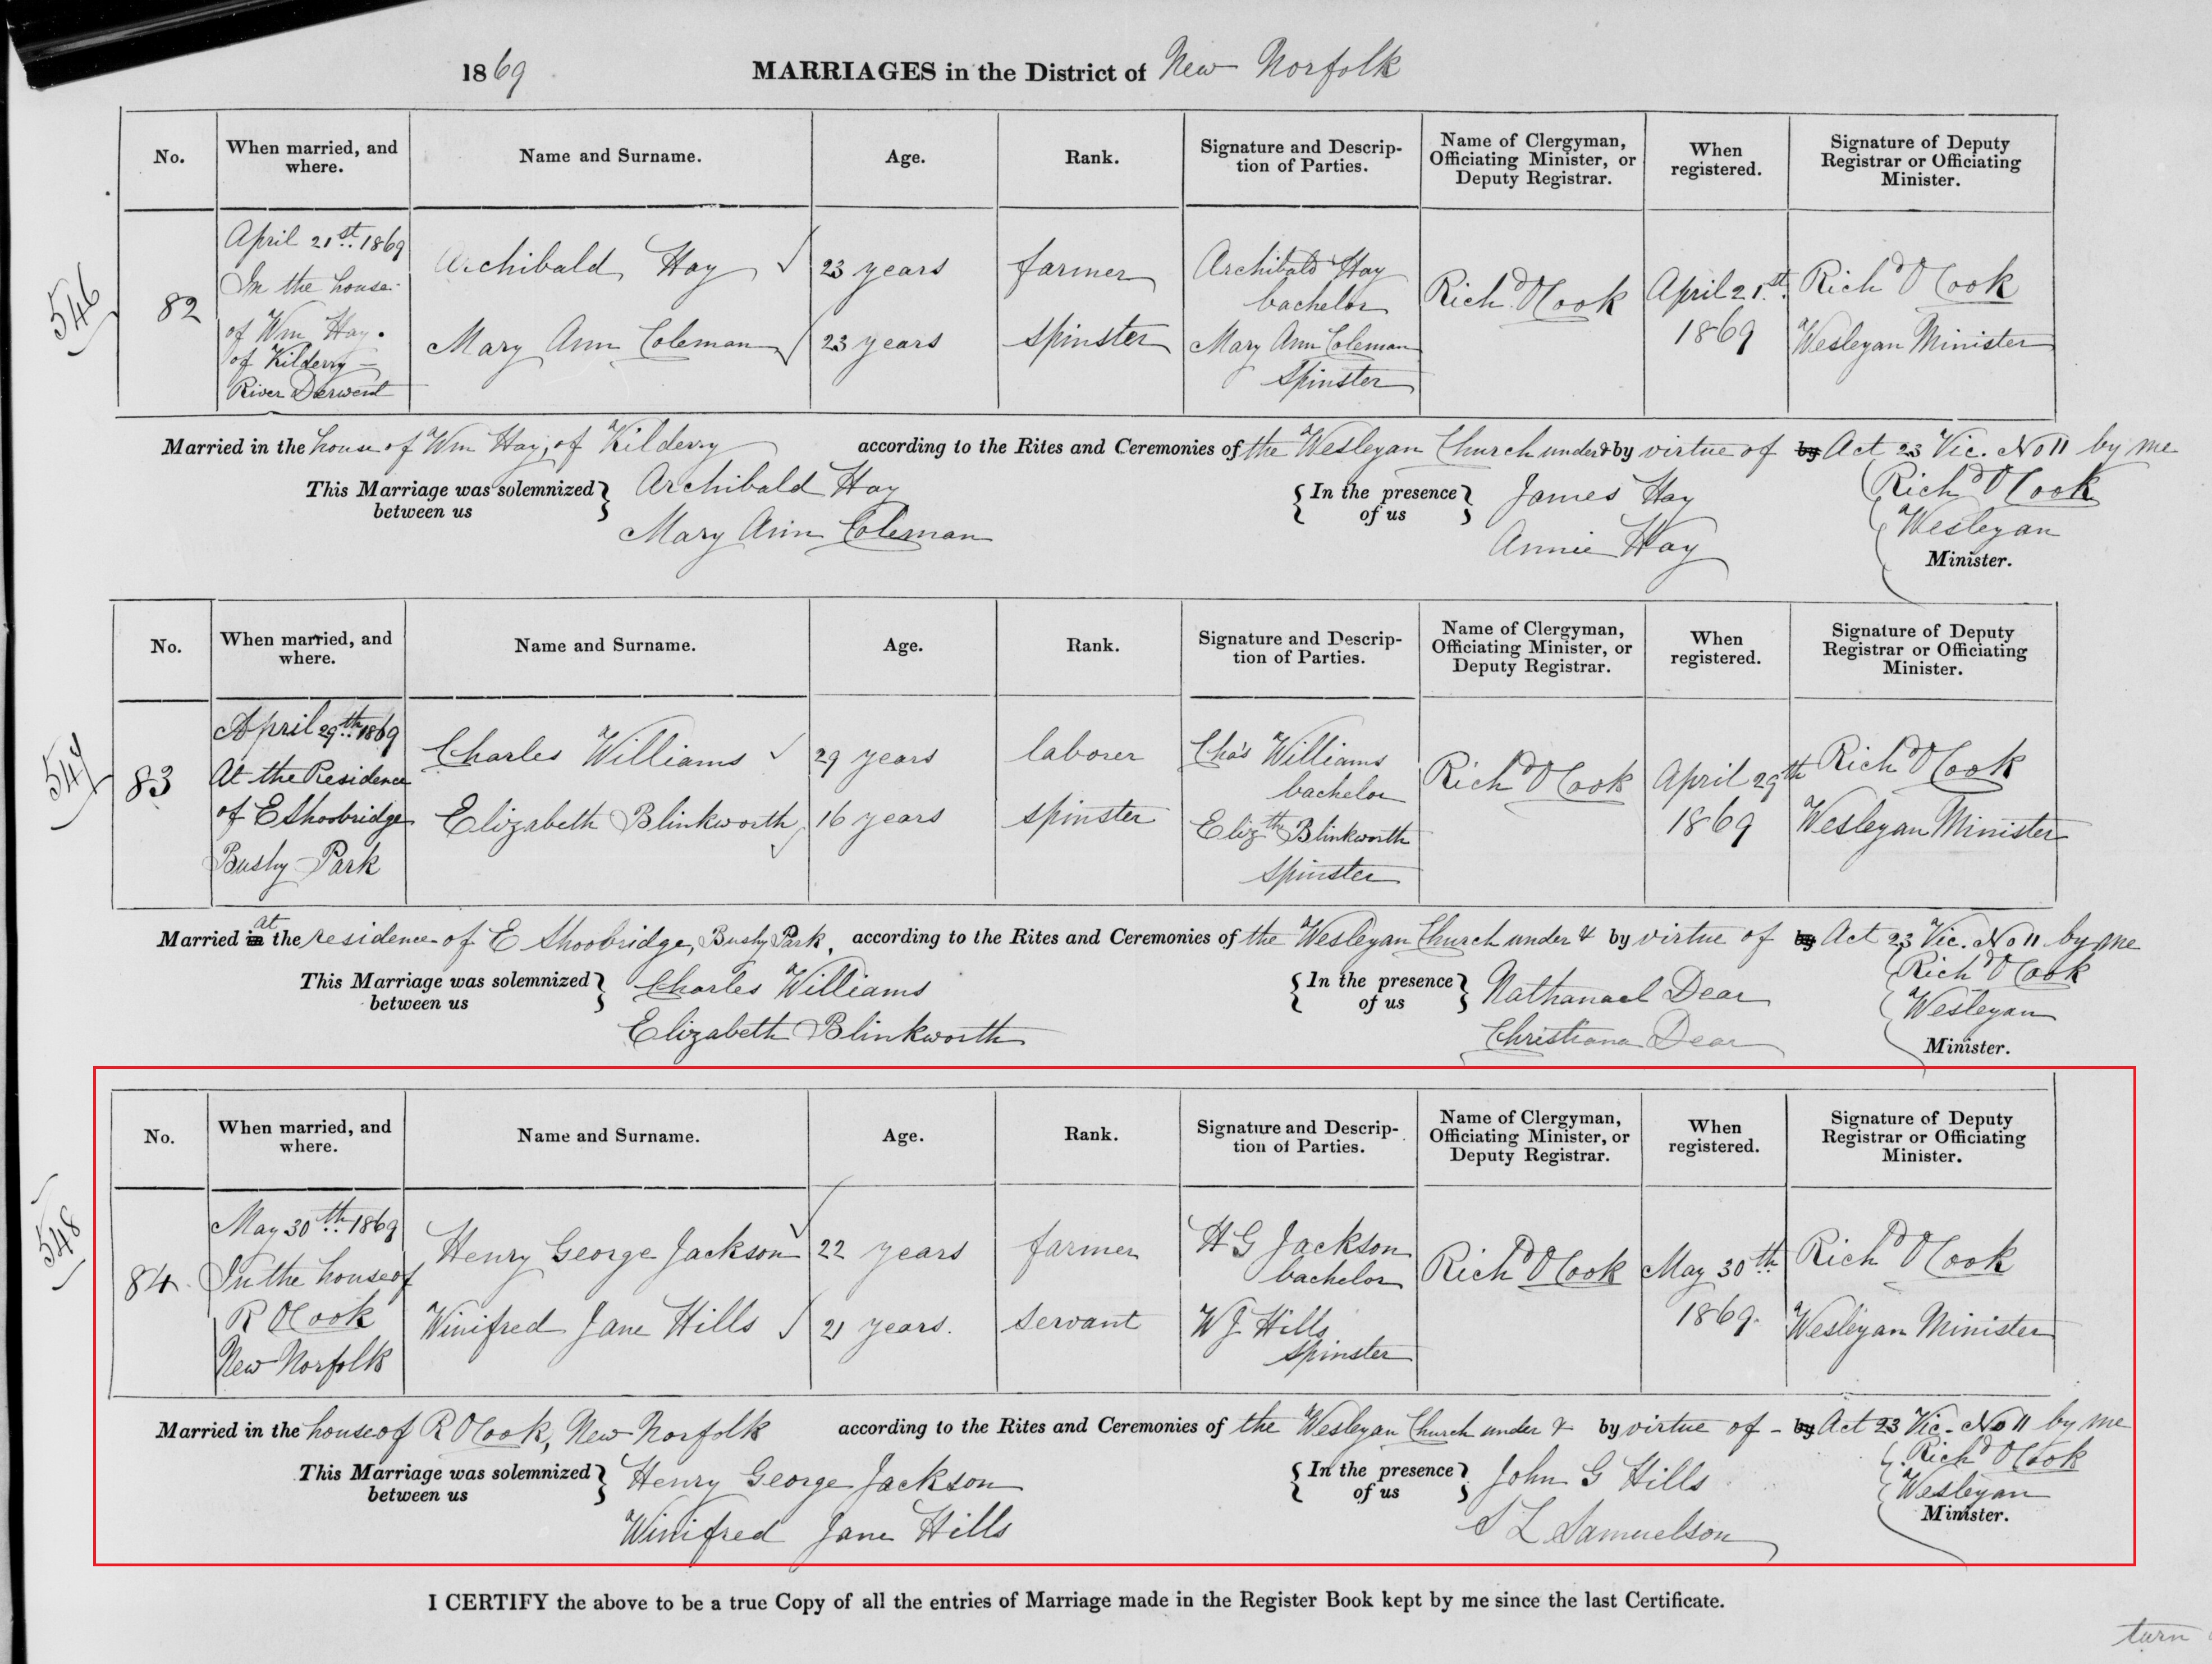 1869 MARRIAGES in the District of New Norfolk
No. When married, and where. Name and Surname. Age. Rank. Signature and Description of Parties. Name of Clergyman, Officiating Minister, or Deputy Registrar. When registered. Signature of Deputy Registrar or Officiating Minister.
546
82
April 21st. 1869
In the house
of Wm Hay.
of Kilderry
River Derwent
Archibald Hay
Mary Ann Coleman
23 years
23 years
farmer
spinster
Archibald Hay
bachelor
Mary Ann Coleman
Spinster
Richd O Cook
April 21st.
1869
Richd O Cook
Wesleyan Minister
Married in the house of Wm Hay, of Kilderry according to the Rites and Ceremonies of the Wesleyan Church under & by virtue of by Act 23 Vic. No 11 by me
This Marriage was solemnized between us
Archibald Hay
Mary Ann Coleman
In the presence of us
James Hay
Annie Hay
Richd O Cook
Wesleyan
Minister.
No. When married, and where. Name and Surname. Age. Rank. Signature and Description of Parties. Name of Clergyman, Officiating Minister, or Deputy Registrar. When registered. Signature of Deputy Registrar or Officiating Minister.
547
83
April 29th. 1869
At the Residence
of E Shoobridge
Bushy Park
Charles Williams
Elizabeth Blinkworth
29 years
16 years
laborer
spinster
Chas Williams
bachelor
Elizth Blinkworth
spinster
Richd O Cook
April 29th
1869
Richd O Cook
Wesleyan Minister
Married in at the residence of E Shoobridge, Bushy Park, according to the Rites and Ceremonies of the Wesleyan Church under & by virtue of by Act 23 Vic. No 11 by me
This Marriage was solemnized between us
Charles Williams
Elizabeth Blinkworth
In the presence of us
Nathanael Dear
Christiana Dear
Richd O Cook
Wesleyan
Minister.
No. When married, and where. Name and Surname. Age. Rank. Signature and Description of Parties. Name of Clergyman, Officiating Minister, or Deputy Registrar. When registered. Signature of Deputy Registrar or Officiating Minister.
548
84.
May 30th. 1869
In the house of
R O Cook
New Norfolk
Henry George Jackson
Winifred Jane Hills
22 years
21 years.
farmer
servant
H G Jackson
bachelor
W J Hills
spinster
Richd O Cook
May 30th.
1869.
Richd O Cook
Wesleyan Minister
Married in the house of R O Cook, New Norfolk according to the Rites and Ceremonies of the Wesleyan Church under & by virtue of - by Act 23 Vic. No 11 by me
This Marriage was solemnized between us
Henry George Jackson
Winifred Jane Hills
In the presence of us
John G Hills
S L Samuelson
Richd O Cook
Wesleyan
Minister.
I CERTIFY the above to be a true Copy of all the entries of Marriage made in the Register Book kept by me since the last Certificate.
turn